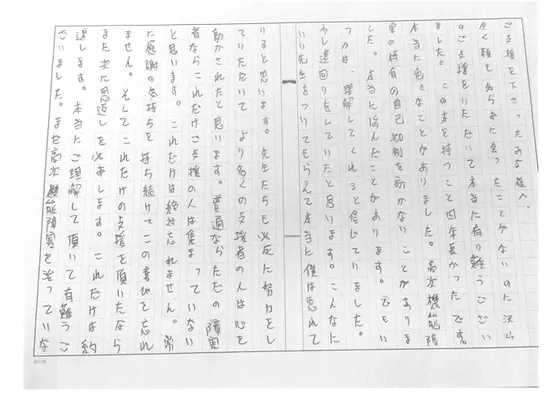 ご支援を下さったお客様へ。
全く顔も知らず会ったことがないのに沢山
のご支援をいただいて本当に有り難うござい
ました。この本を持つこと四年長かったです。
本当に色々なことがありました。高次機能障
害の特有の自己抑制を効かないことがありま
した。本当に悩んだことがあります。でもい
つかは、理解してくれると信じていました。
少し遠回りをしていたと思います。こんなに
いい先生もついてもらえて本当に僕は恵れて
いると思います。先生たちも必死に努力をし
ていただいてより多くの支援者の人は心を
動かされたと思います。普通ならただの障害
者ならこれだけご支援の人は集まっていない
と思います。これだけは絶対忘れません。常
に感謝の気持ちを持ち続けてこの書物を忘れ
ません。そしてこれだけの支援を頂いたなら
また次に恩返しを必ずします。これだけは約
返します。本当にご理解して頂いて有難うご
ざいました。まだ高次機能障害を治っていな